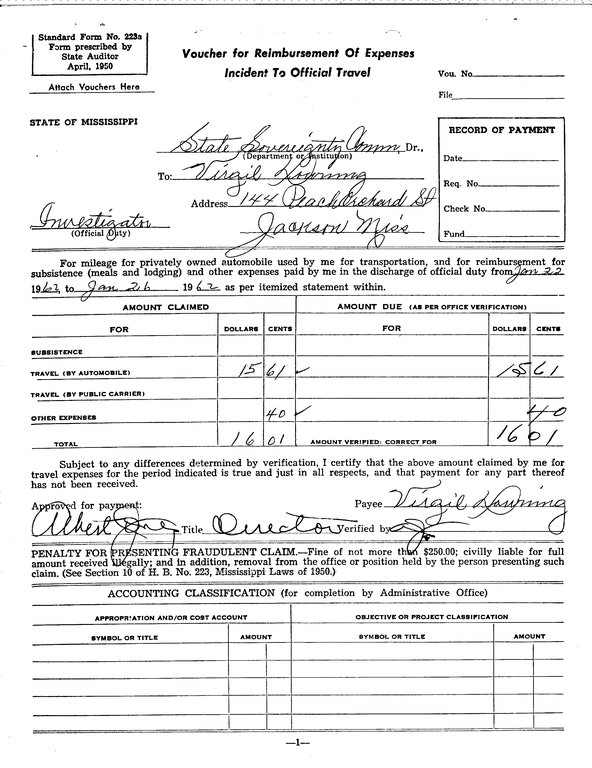 Standard Form No. 223a
Form prescribed by
State Auditor
April, 1950
Attach Vouchers Here
Voucher for Reimbursement Of Expenses
Incident To Official Travel
Vou. No.
File
STATE OF MISSISSIPPI
State Sovereignty Comm, Dr.,
(Department or Institution)
To: Virgil Downing
Address 144 Peach Orchard St
Jackson Miss
Investigator
(Official Duty)
RECORD OF PAYMENT
Date
Req. No.
Check No.
Fund
For mileage for privately owned automobile used by me for transportation, and for reimbursement for
subsistence (meals and lodging) and other expenses paid by me in the discharge of official duty from Jan 22
1962, to Jan 26 1962 as per itemized statement within.
AMOUNT CLAIMED AMOUNT DUE (AS PER OFFICE VERIFICATION)
FOR DOLLARS CENTS FOR DOLLARS CENTS
SUBSISTENCE
TRAVEL (BY AUTOMOBILE) 15 61 ✓ 15 61
TRAVEL (BY PUBLIC CARRIER)
OTHER EXPENSES 40 ✓ 40
TOTAL 16 01 AMOUNT VERIFIED; CORRECT FOR 16 01
Subject to any differences determined by verification, I certify that the above amount claimed by me for
travel expenses for the period indicated is true and just in all respects, and that payment for any part thereof
has not been received.
Approved for payment: Payee Virgil Downing
Albert Jones Title Director Verified by
PENALTY FOR PRESENTING FRAUDULENT CLAIM.—Fine of not more than $250.00; civilly liable for full
amount received illegally; and in addition, removal from the office or position held by the person presenting such
claim. (See Section 10 of H. B. No. 223, Mississippi Laws of 1950.)
ACCOUNTING CLASSIFICATION (for completion by Administrative Office)
APPROPRIATION AND/OR COST ACCOUNT OBJECTIVE OR PROJECT CLASSIFICATION
SYMBOL OR TITLE AMOUNT SYMBOL OR TITLE AMOUNT
—1—